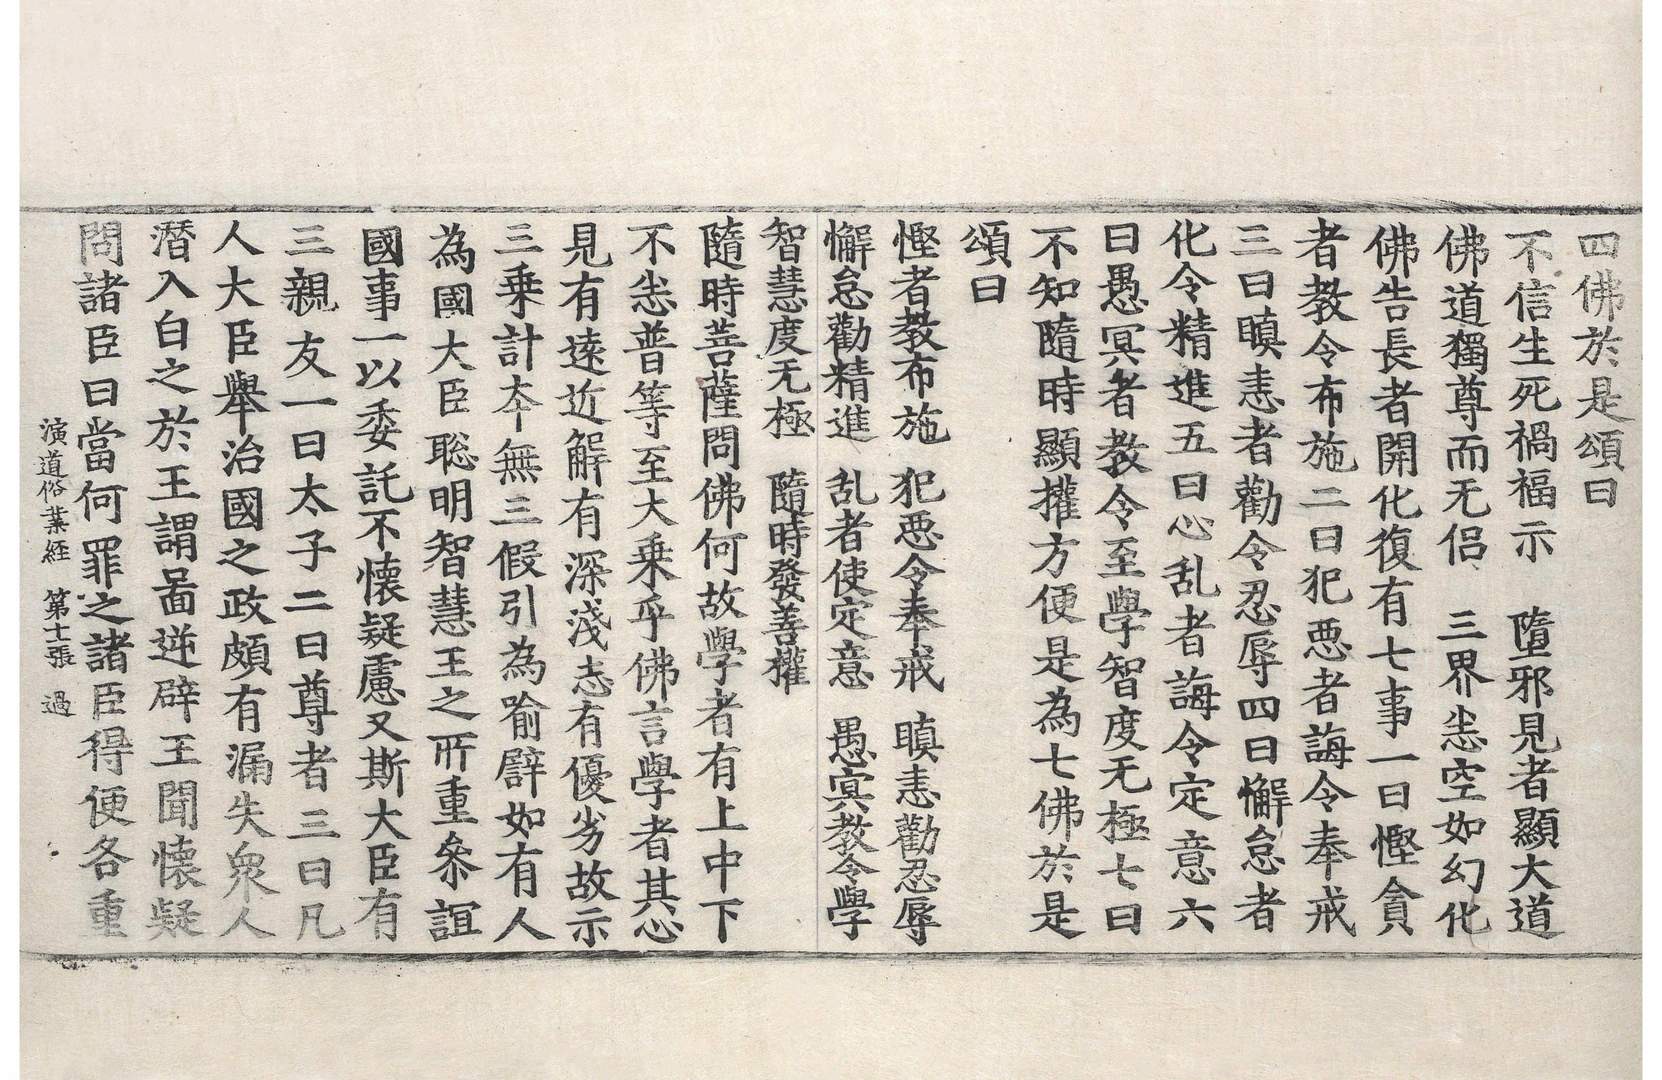 四佛於是頌曰
不信生死禍福示　墮邪見者顯大道
佛道獨尊而无侣　三界恙空如幻化
佛告長者開化復有七事一曰慳貪
者教令布施二曰犯惡者誨令奉戒
三曰瞋恚者勸令忍辱四曰懈怠者
化令精進五曰心乱者誨令定意六
曰愚冥者教令至學智度无極七曰
不知隨時顯攉方便是為七佛於是
頌曰
慳者教布施　犯惡令奉戒　瞋恚勸忍辱
懈怠勸精進　乱者使定意　愚冥教令學
智慧度无極　隨時發善權
隨時菩薩問佛何故學者有上中下
不恙普等至大乘乎佛言學者其心
見有遠近解有深淺志有優劣故示
三乘計夲無三假引為喻譬如有人
為國大臣聡明智慧王之所重叅誼
國事一以委託不懷疑慮又斯大臣有
三親友一曰太子二曰尊者三曰凡
人大臣舉治國之政頗有漏失衆人
潛入白之於王謂啚逆辟王聞懷疑
問諸臣曰當何罪之諸臣得便各重
演道俗業経　第七張　過